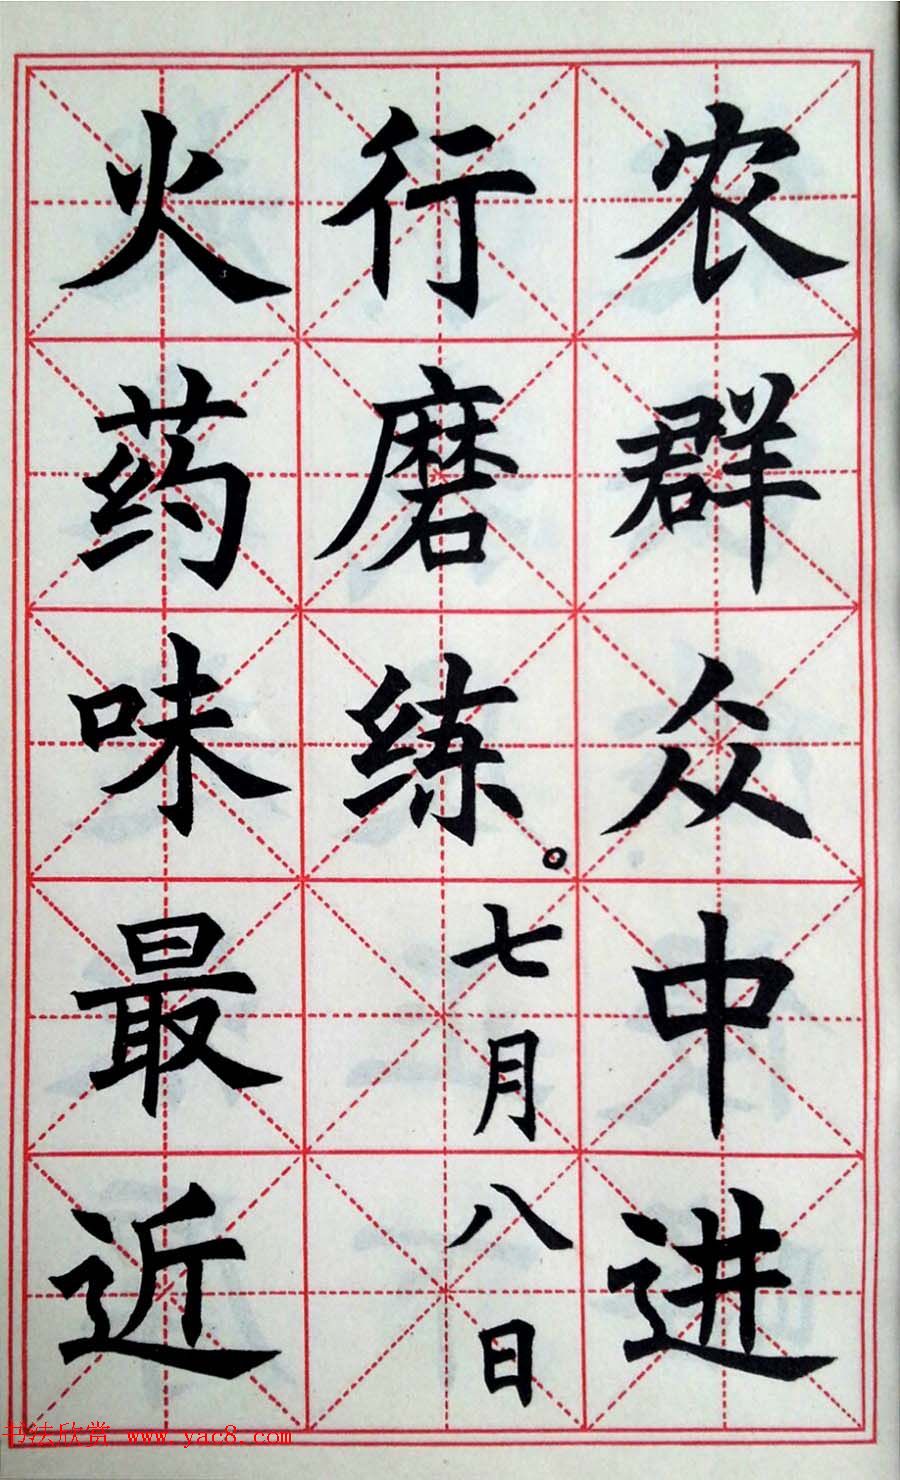 农群众中进
行磨练。
七月八日
火药味最近
书法欣赏 www.yac8.com